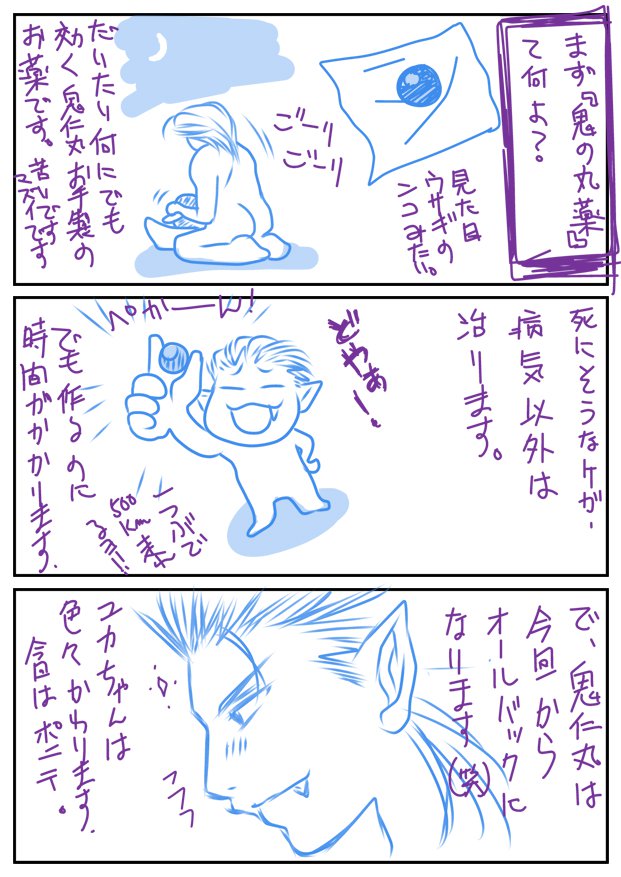 まず『鬼の丸薬』
て何よ?。
見た目
ウサギの
ンコみたい。
ごーリ
ごーリ
だいたい何にでも
効く鬼仁丸お手製の
お薬です。苦いです
マズイです
死にそうなケガ・
病気以外は
治ります。
どやぁー!。
ペかーーん!
一つぶで
500km走れ
るヨ!!
でも作るのに
時間がかかります.
で、鬼仁丸は
今回から
オールバックに
なります(笑)
フフフ
ユカちゃんは
色々かわります.
今回はポニテ。